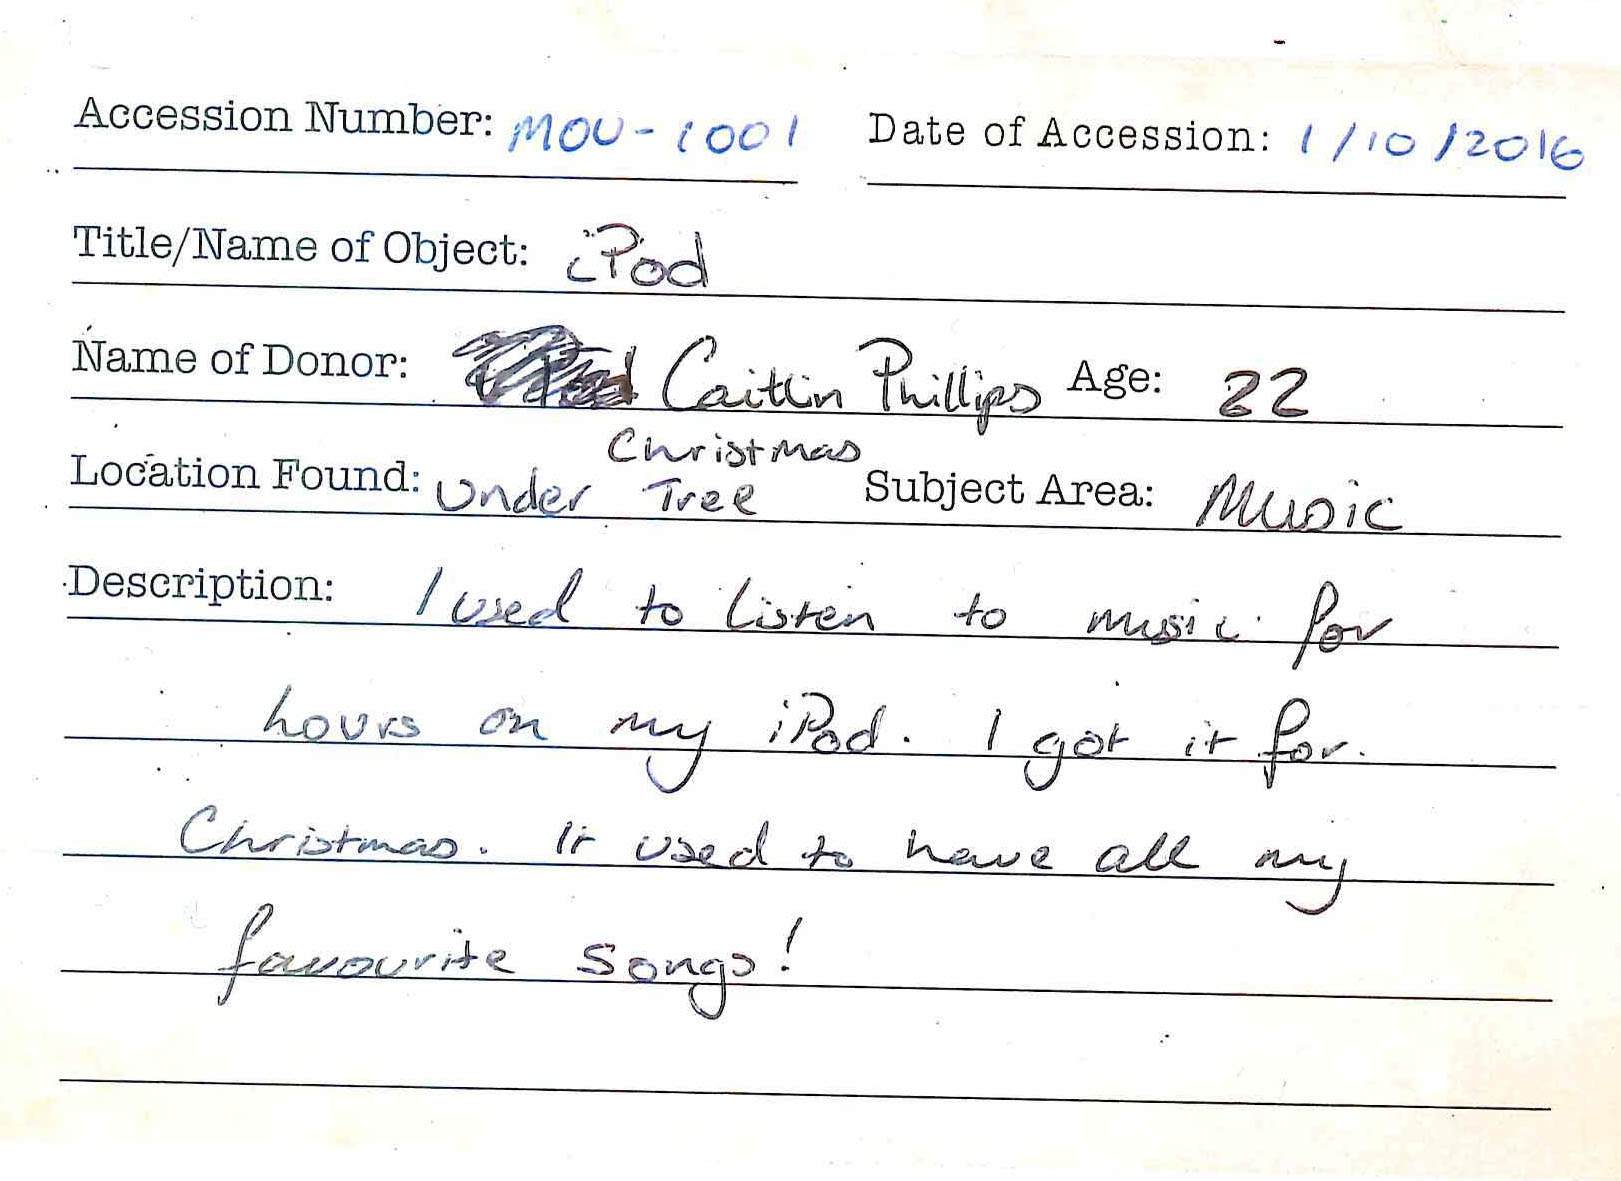 Accession Number: MOU-1001 Date of Accession: 1/10/2016
Title/Name of Object: iPod
Name of Donor: Caitlin Phillips Age: 22
Christmas
Location Found: Under Tree Subject Area: Music
Description: I used to listen to music for
hours on my iPod. I got it for.
Christmas. It used to have all my
favourite songs!